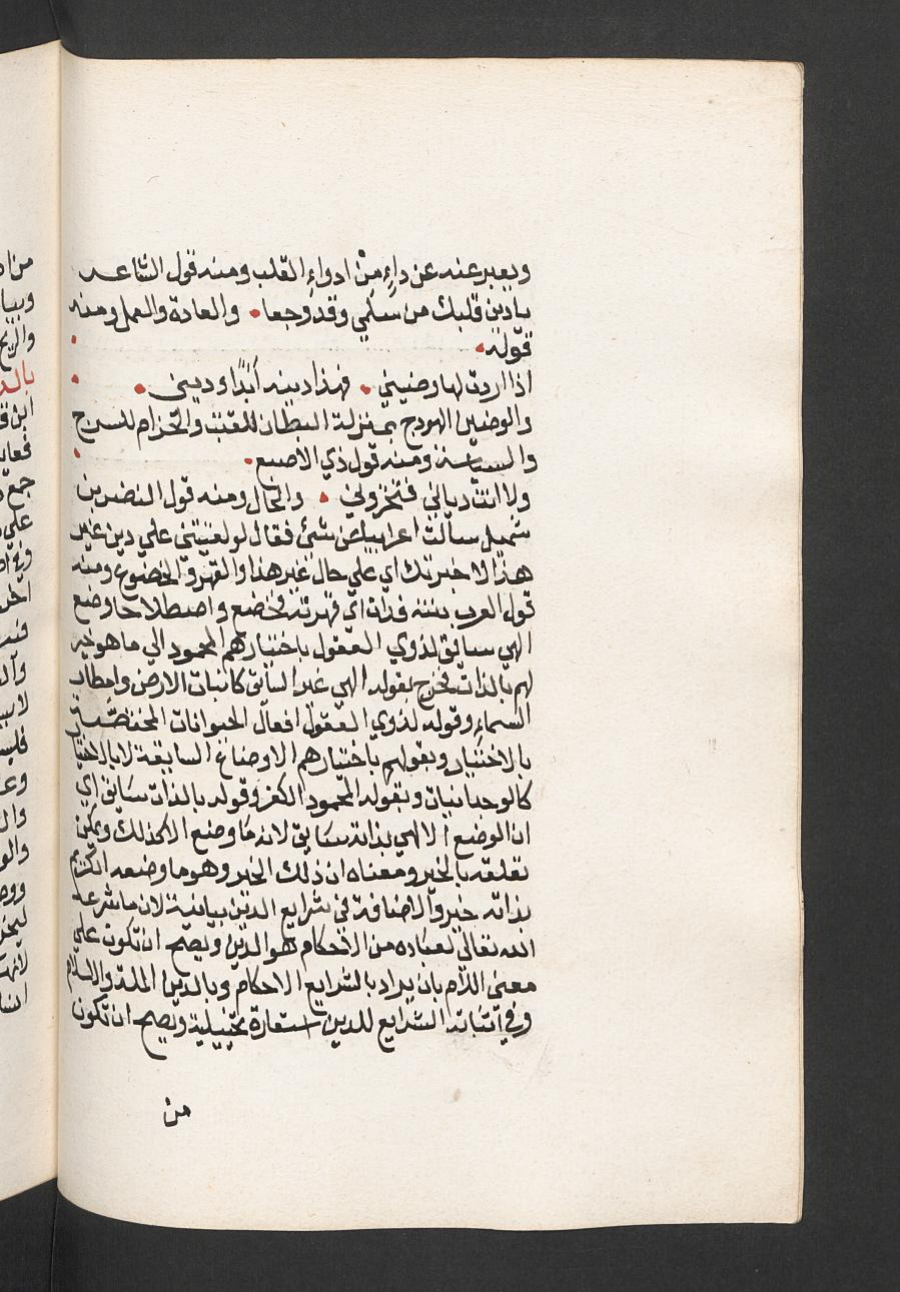 ويعبر عنه عن داءٍ مِنْ ادواءِ القلب ومنه قول الشاعر
يا دين قلبك من سلمي وقد وجعا • والعادة والعمل ومنه
قوله •
اذا اردت لها وضيني • فهذا دينه أبدًا وديني •
والوضين الهودج بمنزلة البطان للقتب والحزام للسرج
والسياسة ومنه قول ذي الاصبع •
ولا انت دياني فتخزوني • والحال ومنه قول النضر بن
شميل سالت اعرابيا عن شئ فقال لو لقيتني علي دين غير
هذا لاخبرتك اي علي حال غير هذا والقهر والخضوع ومنه
قول العرب دنته فدان اي قهرته فخضع واصطلاحا وضع
الهي سائق لذوي العقول باختيارهم المحمود الي ما هو خير
لهم بالذات فخرج بقوله الهي غير السائق كانبات الارض وامطار
السماء وقوله لذوي العقول افعال الحيوانات المختصة
بالاختيار وبقولهم باختيارهم الاوضاع السابقة لا بالاختيا
كالوجدانيات وبقوله المحمود الكفر وقوله بالذات سائق اي
ان الوضع الالهي بذاته سائق لانه ما وضع الا كذلك ويمكن
تعلقه بالخير ومعناه ان ذلك الخير وهو ما وضعه الكريم
بذاته خير والاضافة في شرايع الدين بيانية لان ما شرعه
الله تعالي لعباده من الاحكام هو الدين ويصح ان تكون علي
معني اللام بان يراد بالشرايع الاحكام وبالدين الملة والاسلام
وفي اثبات الشرايع للدين استعارة تخييلية ويصح ان تكون
من